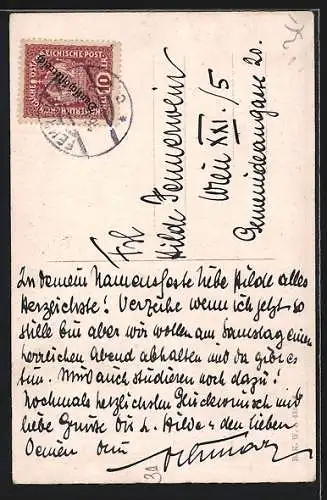 KAISERLICHE KÖNIGLICHE ÖSTERREICHISCHE POST
10
Deutschösterreich
Frl
Hilde Feuerwein
Wien XXI./5
Gemeindeaugasse 20.
Zu deinem Namensfeste liebe Hilde alles
Herzlichste! Verzeihe wenn ich jetzt so
stille bin aber wir wollen am Samstag einen
herrlichen Abend abhalten und da gibt es
tun. Wird auch studieren noch dazu!
Nochmals herzlichsten Glückwunsch und
liebe Grüsse dir l. Hilde u den lieben
Deinen dein
30